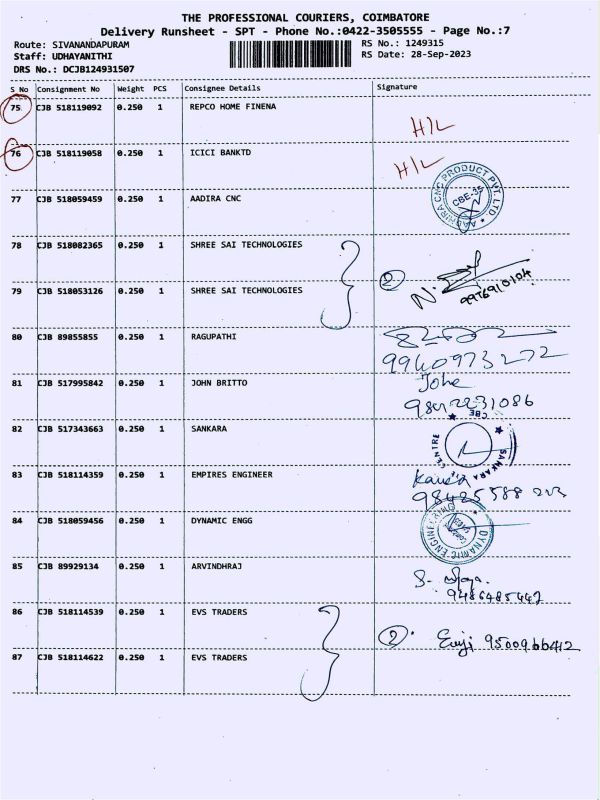 THE PROFESSIONAL COURIERS, COIMBATORE
Delivery Runsheet - SPT - Phone No.:0422-3505555 - Page No.:7
Route: SIVANANDAPURAM
Staff: UDHAYANITHI
DRS No.: DCJB124931507
RS No.: 1249315
RS Date: 28-Sep-2023
S No Consignment No Weight PCS Consignee Details Signature
75 CJB 518119092 0.250 1 REPCO HOME FINENA H/L
76 CJB 518119058 0.250 1 ICICI BANKTD H/L
77 CJB 518059459 0.250 1 AADIRA CNC
CNC PRODUCT PVT. LTD.
CBE-35
78 CJB 518082365 0.250 1 SHREE SAI TECHNOLOGIES
2
9976910104
79 CJB 518053126 0.250 1 SHREE SAI TECHNOLOGIES
80 CJB 89855855 0.250 1 RAGUPATHI
9940973272
81 CJB 517995842 0.250 1 JOHN BRITTO
82 CJB 517343663 0.250 1 SANKARA
SANKARA EYE CENTRE
CBE
83 CJB 518114359 0.250 1 EMPIRES ENGINEER
84 CJB 518059456 0.250 1 DYNAMIC ENGG
DYNAMIC ENGINEERING
85 CJB 89929134 0.250 1 ARVINDHRAJ
9486485447
86 CJB 518114539 0.250 1 EVS TRADERS
2
9500966412
87 CJB 518114622 0.250 1 EVS TRADERS